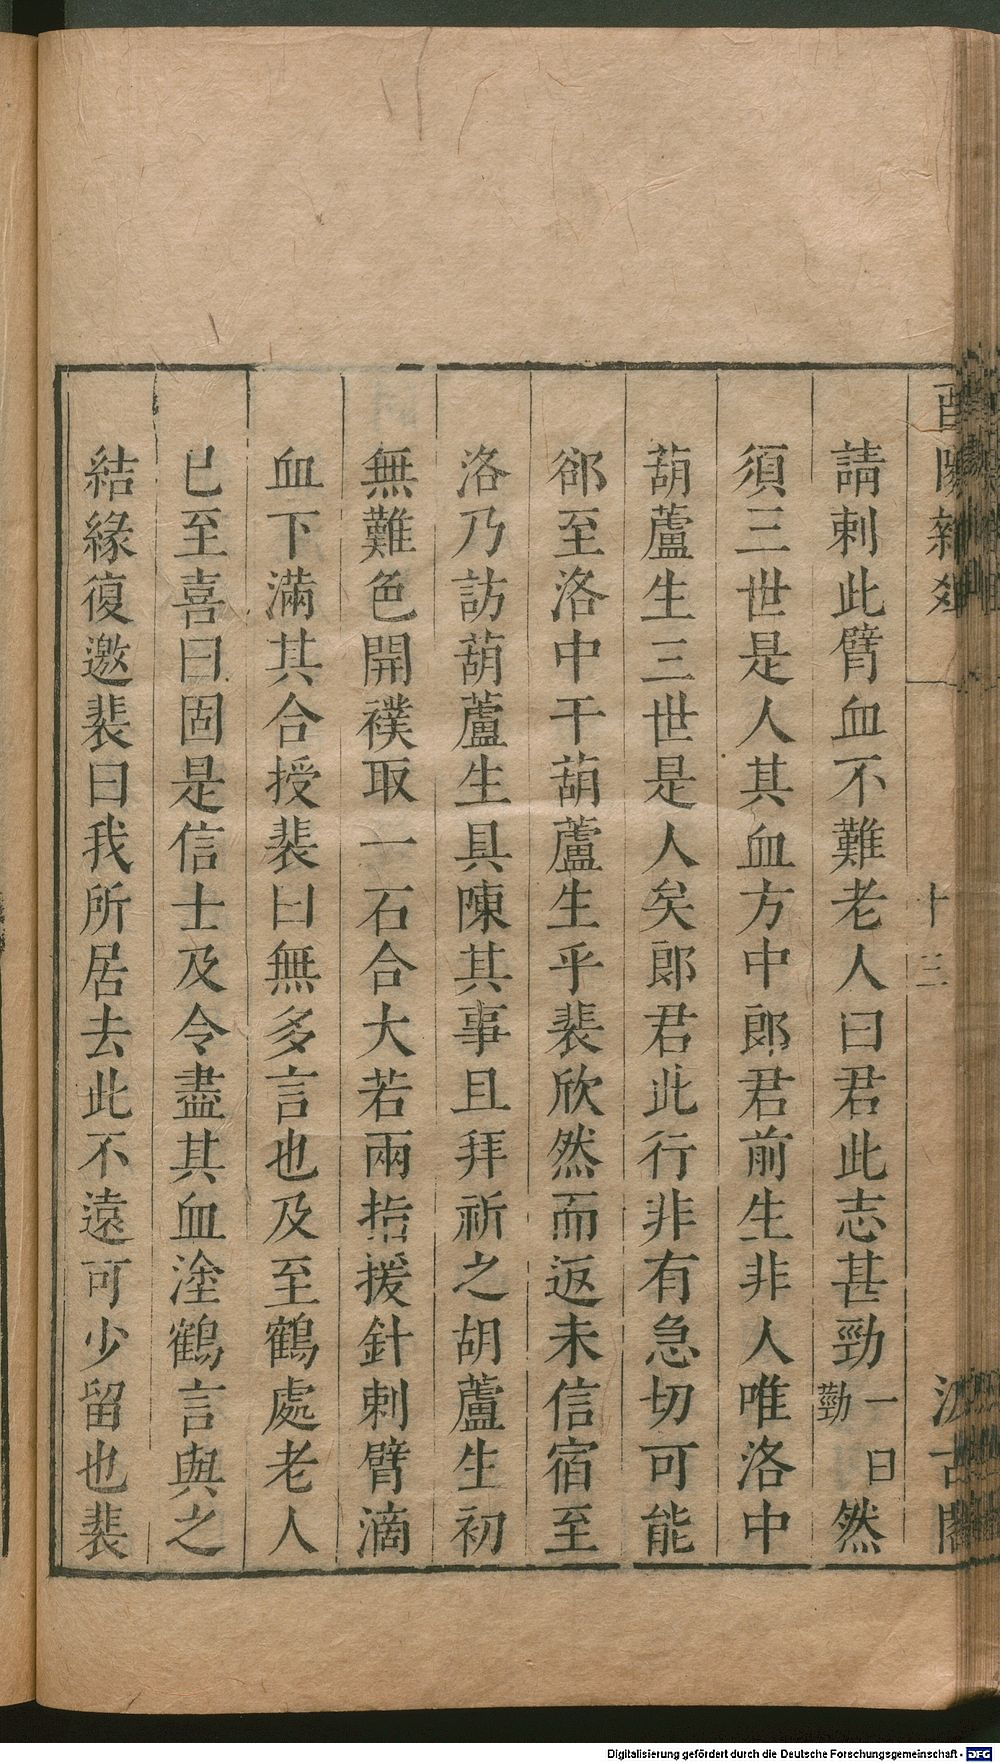 酉陽雜俎 十三 汲古閣
請刺此臂血不難老人曰君此志甚勁一曰勁然
須三世是人其血方中郎君前生非人唯洛中
葫蘆生三世是人矣郎君此行非有急切可能
郤至洛中干葫蘆生乎裴欣然而返未信宿至
洛乃訪葫蘆生具陳其事且拜祈之胡蘆生初
無難色開襆取一石合大若兩指援針刺臂滴
血下滿其合授裴曰無多言也及至鶴處老人
已至喜曰固是信士及令盡其血塗鶴言與之
結緣復邀裴曰我所居去此不遠可少留也裴
Digitalisierung gefördert durch die Deutsche Forschungsgemeinschaft - DFG